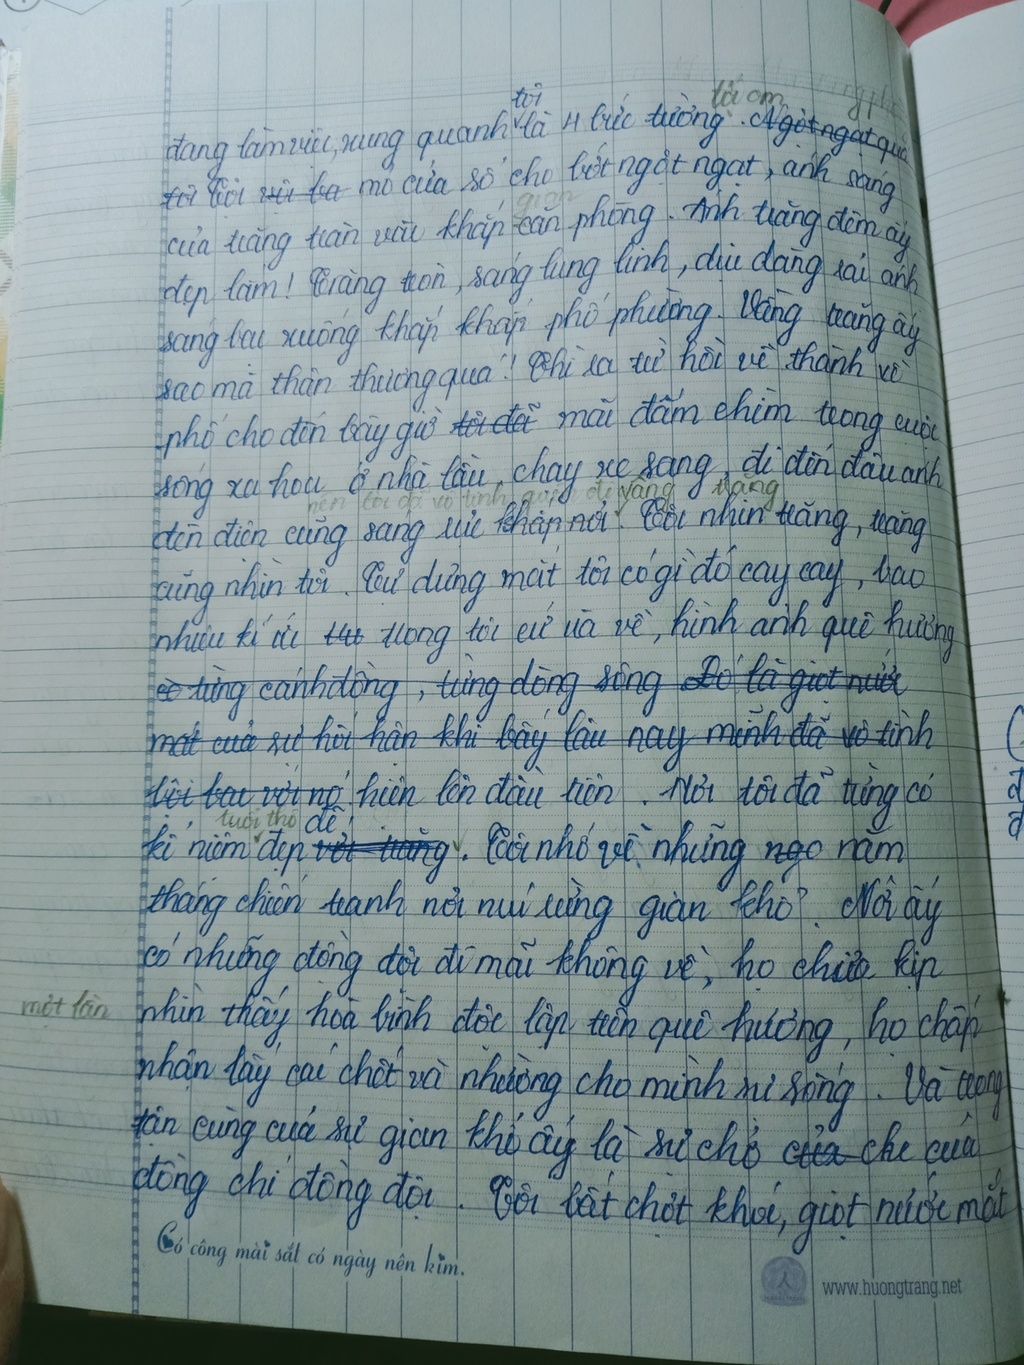 tôi
tối om
đang làm việc, xung quanh là 4 bức tường. Ngột ngạt quá
tôi tôi mở cửa sổ cho bớt ngột ngạt, ánh sáng
gian
của trăng tràn vào khắp căn phòng. Ánh trăng đêm ấy
đẹp lắm! Trăng tròn, sáng lung linh, dịu dàng rải ánh
sáng bạc xuống khắp khắp phố phường. Vầng trăng ấy
sao mà thân thương quá! Thì ra từ hồi về thành về
phố cho đến bây giờ tôi đã mải đắm chìm trong cuộc
sống xa hoa ở nhà lầu, chạy xe sang, đi đến đâu ánh
nên tôi đã vô tình quên đi vầng trăng
đèn điện cũng sáng rực khắp nơi. Tôi nhìn trăng, trăng
cũng nhìn tôi. Tự dưng mắt tôi có gì đó cay cay, bao
nhiêu kí ức trong tôi cứ ùa về, hình ảnh quê hương
có từng cánh đồng, từng dòng sông Đó là giọt nước
mắt của sự hối hận khi bấy lâu nay mình đã vô tình
bội bạc với nó hiện lên đầu tiên. Nơi tôi đã từng có
tuổi thơ đẽ
kỉ niệm đẹp với trăng. Tôi nhớ về những ngo năm
tháng chiến tranh nơi núi rừng gian khổ. Nơi ấy
có những đồng đội đi mãi không về, họ chưa kịp
một lần
nhìn thấy hoà bình độc lập trên quê hương, họ chấp
nhận lấy cái chết và nhường cho mình sự sống. Và trong
tận cùng cuả sự gian khổ ấy là sự chở của che cuả
đồng chí đồng đội. Tôi bất chợt khóc, giọt nước mắt
Có công mài sắt có ngày nên kim.
www.huongtrang.net